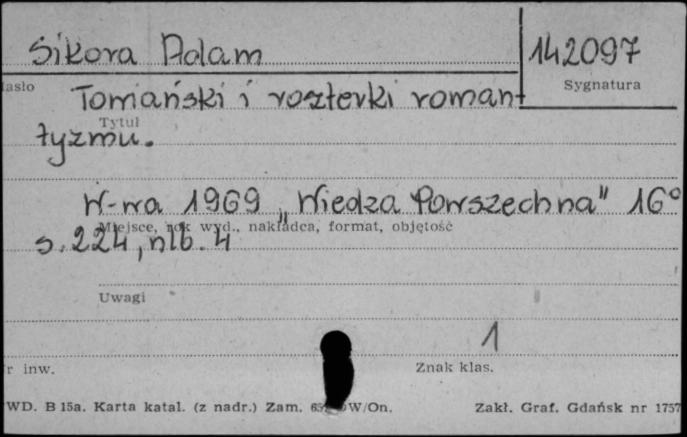 Sikora Adam
142097
Sygnatura
asło
Tomański i rozterki roman-
Tytuł
tyzmu.
W-wa 1969 „Wiedza Powszechna" 16°
Miejsce, rok wyd., nakładca, format, objętość
s. 224, nlb. 4
Uwagi
1
r inw.
Znak klas.
WD. B 15a. Karta katal. (z nadr.) Zam. W/On.
Zakł. Graf. Gdańsk nr 1757